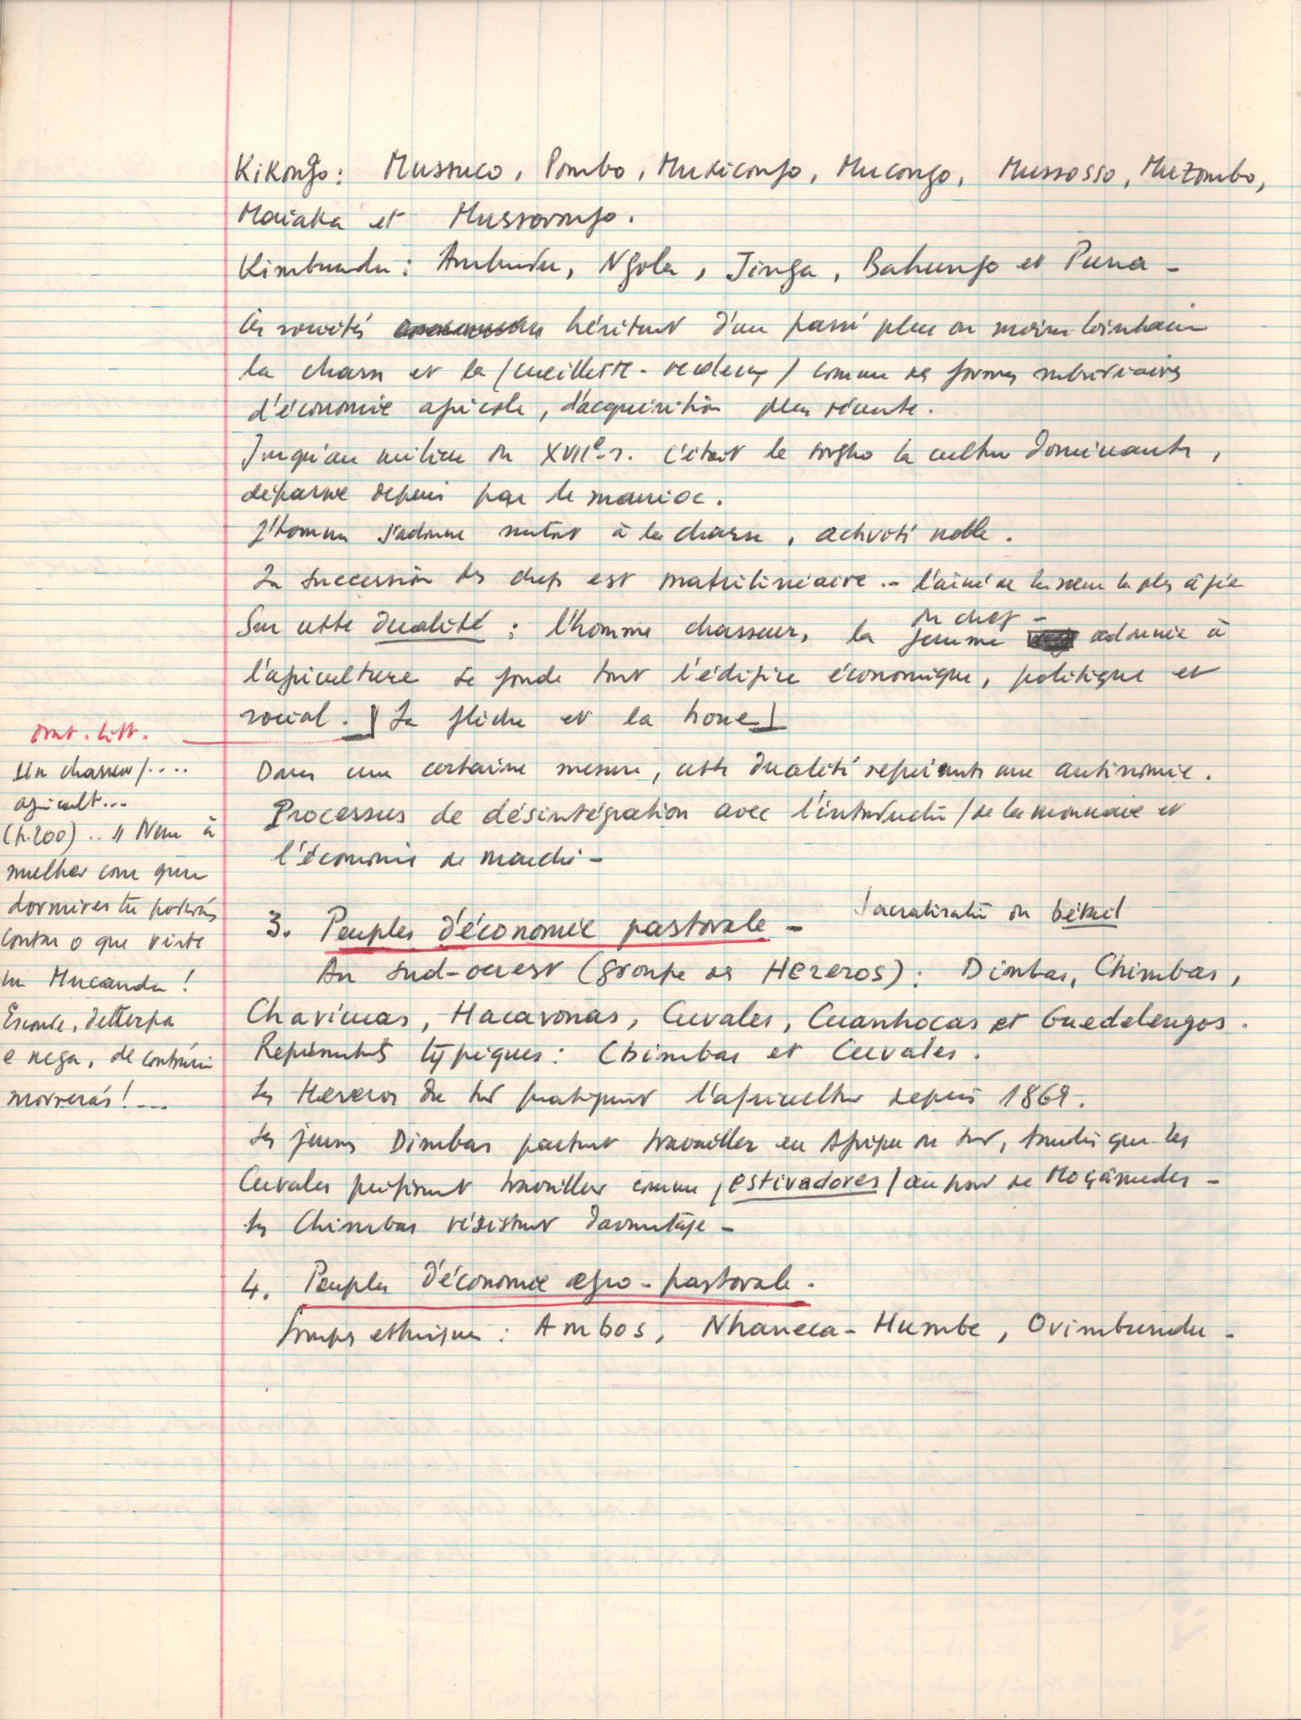 Kikongo: Mussuco, Pombo, Muxicongo, Mucongo, Mussosso, Muzombo,
Maiaka et Mussorongo.
Kimbundu: Ambundu, Ngola, Jinga, Bahungo et Puna -
Ces sociétés héritent d'un passé plus ou moins lointain
la chasse et la (cueillette - ) comme des formes subsidiaires
d'économie agricole, d'acquisition plus récente.
Jusqu'au milieu du XVIIe s. c'était le sorgho la culture dominante,
dépassée depuis par le manioc.
L'homme s'adonne surtout à la chasse, activité noble.
La succession des chefs est matrilinéaire. - l'aîné de la sœur la plus âgée
du chef -
Sur cette dualité : l'homme chasseur, la femme adonnée à
l'agriculture se fonde tout l'édifice économique, politique et
social. [La flèche et la houe]
Dans une certaine mesure, cette dualité représente une antinomie.
Processus de désintégration avec l'introduction / de la monnaie et
l'économie de marché -
orat. litt.
Un chasseur / ....
agricult...
(p. 200) .. " Nem à
mulher com quem
dormires tu poderás
contar o que viste
na Mucanda !
Esconde, deturpa
e nega, de contrário
morrerás ! ...
3. Peuples d'économie pastorale - Sacralisation du bétail
Au sud-ouest (groupe des Hereros) : Dimbas, Chimbas,
Chavicuas, Hacavonas, Cuvales, Cuanhocas et Guedelengos.
Représentants typiques : Chimbas et Cuvales.
Les Hereros du sud pratiquent l'agriculture depuis 1869.
Les jeunes Dimbas partent travailler en Afrique du sud, tandis que les
Cuvales préfèrent travailler comme / estivadores / au port de Moçâmedes -
Les Chimbas résistent davantage -
4. Peuples d'économie agro-pastorale.
Groupes ethniques : Ambos, Nhaneca-Humbe, Ovimbundu -